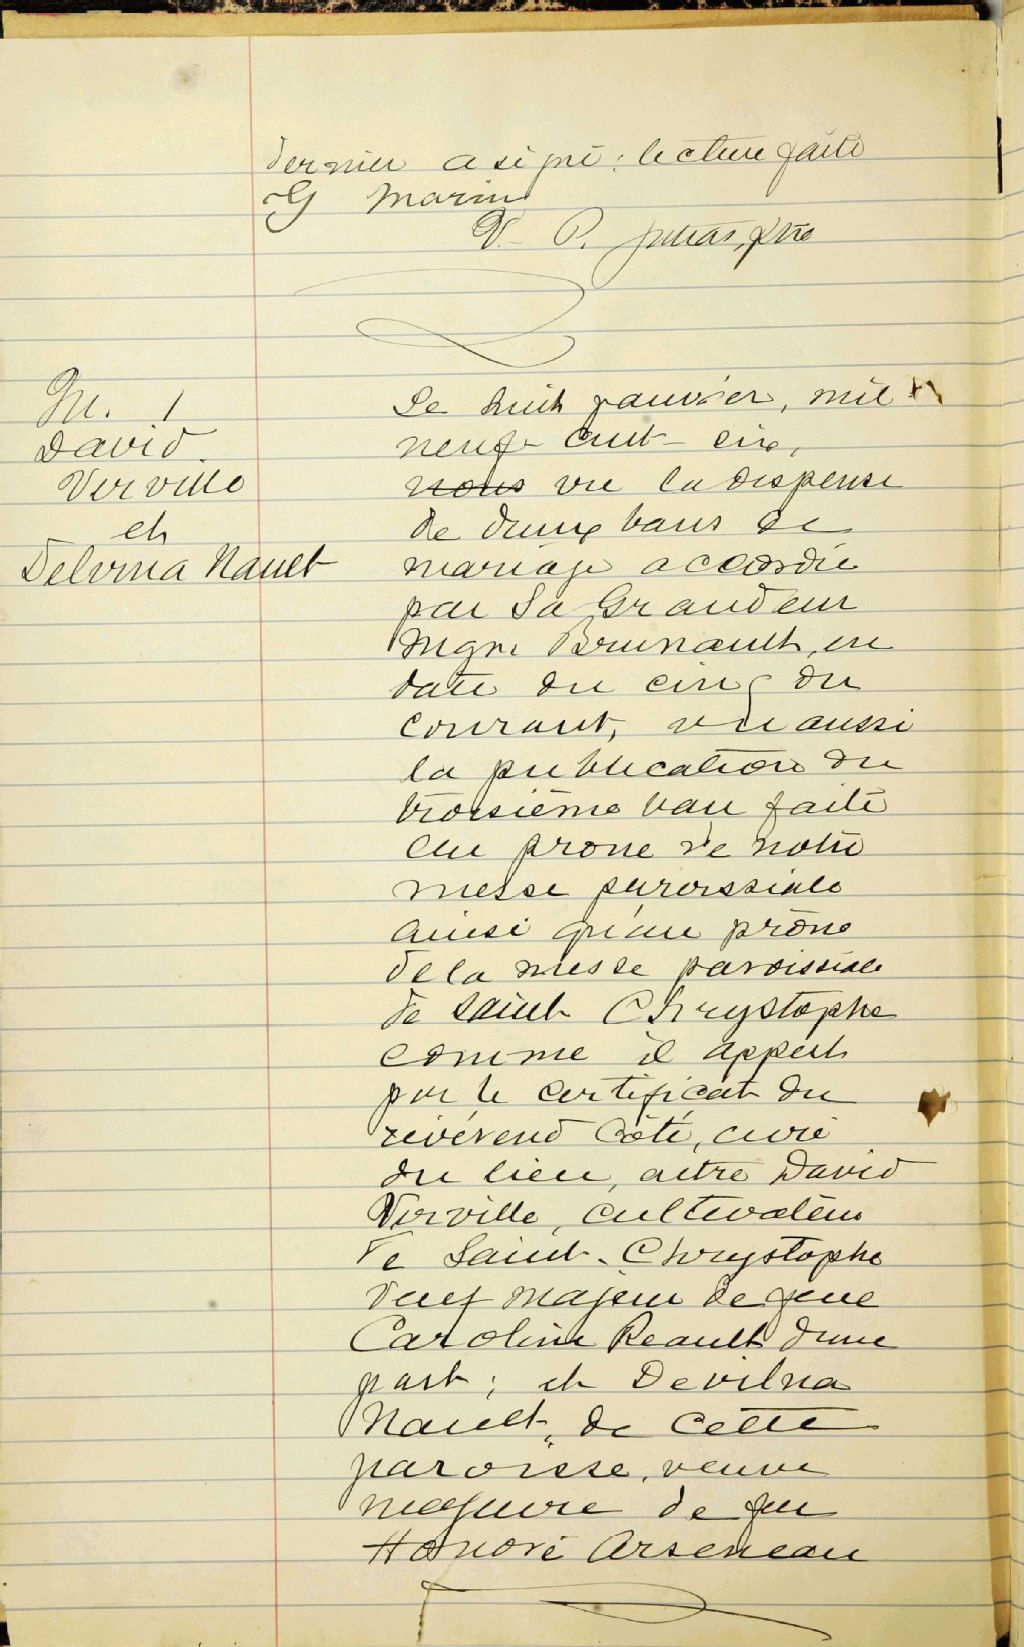 dernier a signé; lecture faite
G Marin
V. P. Jutras, ptre
M. 1
David
Verville
et
Delvina Nault
Le huit janvier, mil
neuf cent six,
nous vu la dispense
de deux bans de
mariage accordée
par Sa Grandeur
Mgr. Brunault, en
date du cinq du
courant, vu aussi
la publication du
troisième ban faite
au prone de notre
messe paroissiale
ainsi qu'au prône
de la messe paroissiale
de Saint Chrystophe
comme il appert
par le certificat du
révérend Côté, curé
du lieu, entre David
Verville, cultivateur
de Saint-Chrystophe
veuf majeur de feue
Caroline Reault d'une
part; et Devilna
Nault, de cette
paroisse, veuve
majeure de feu
Honoré Arseneau